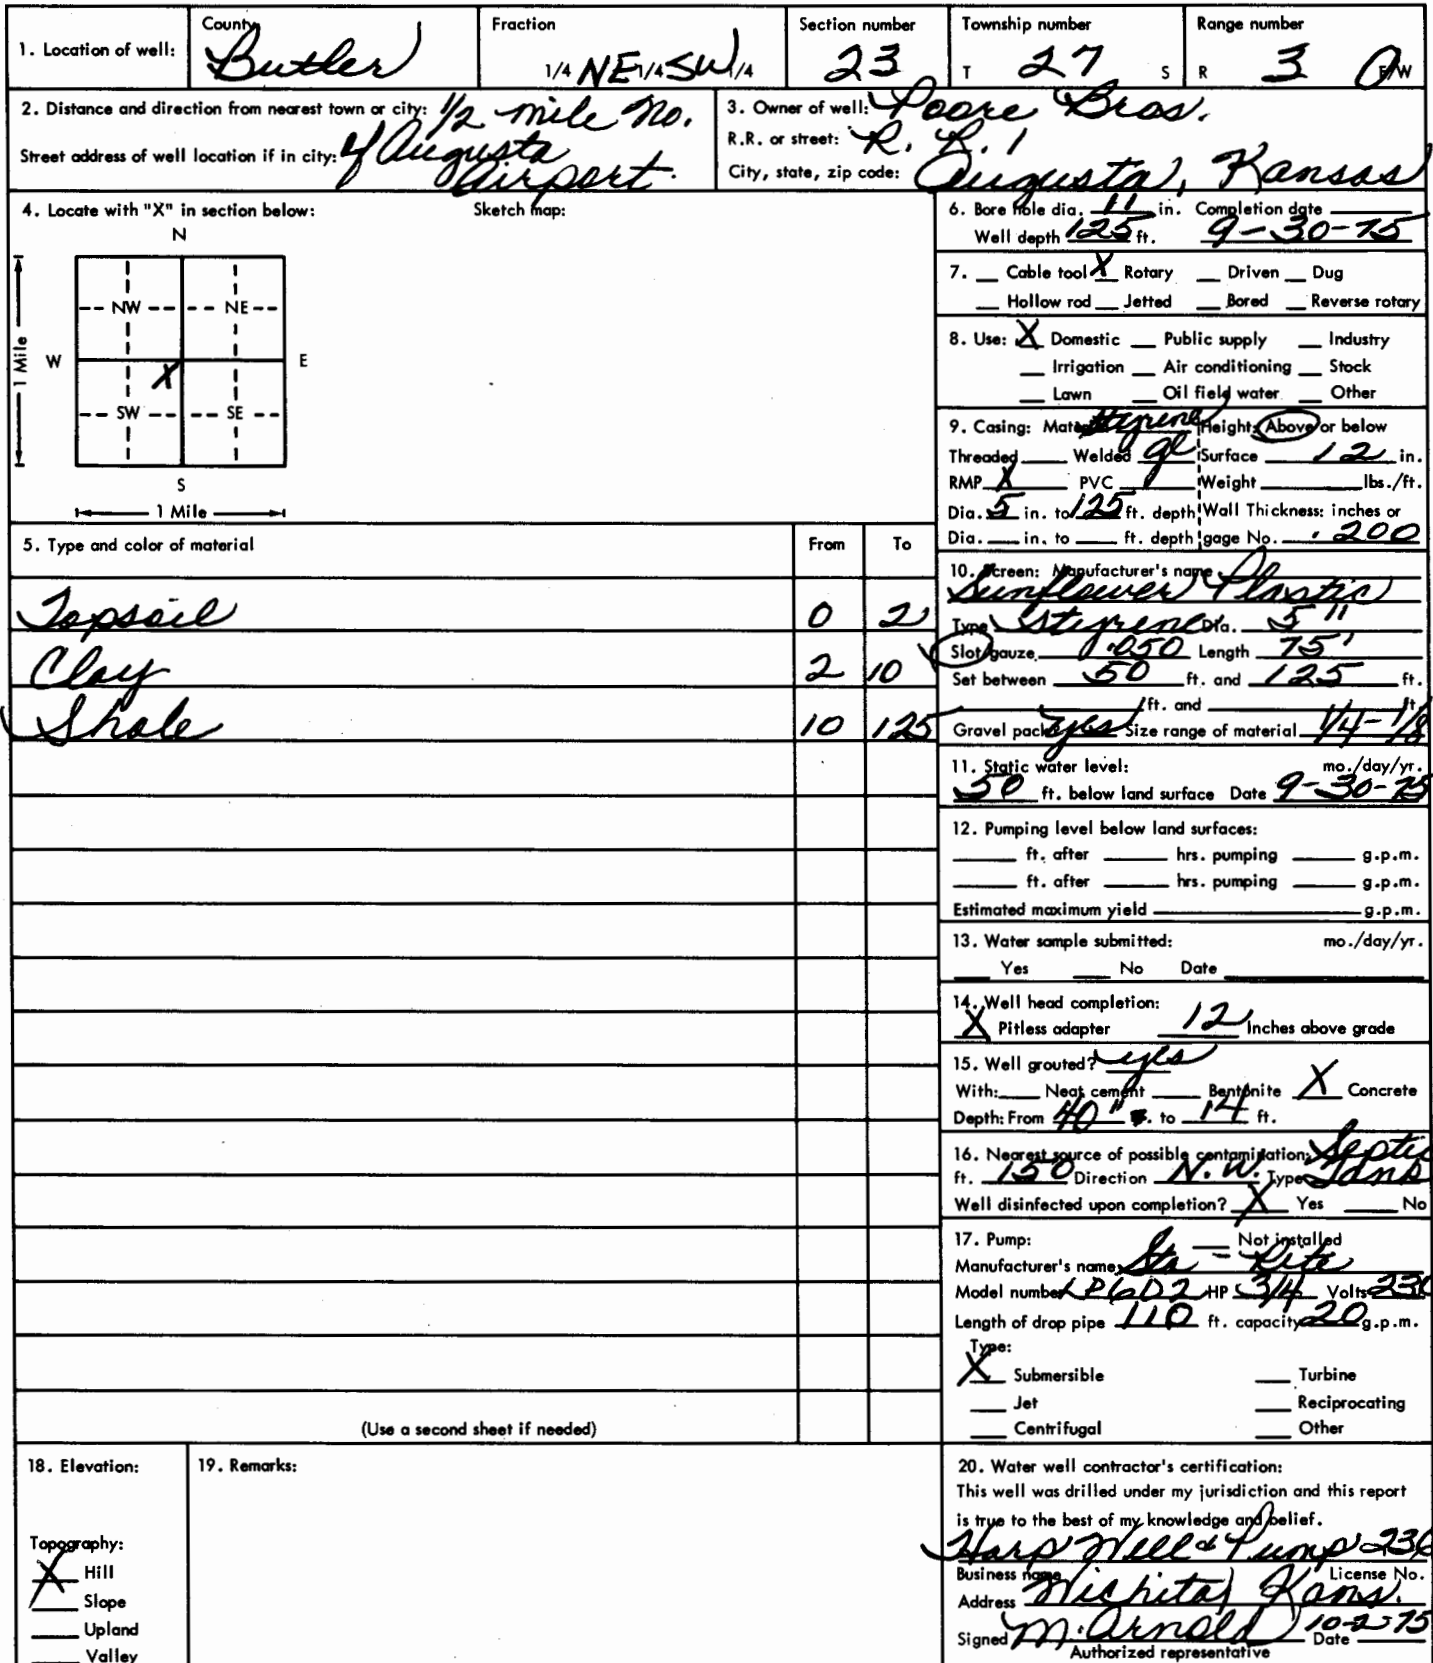 1. Location of well: County Butler Fraction 1/4 NE 1/4 SW 1/4 Section number 23 Township number T 27 S Range number R 3 E/W
2. Distance and direction from nearest town or city: 1/2 mile No.
of Augusta
Street address of well location if in city: Airport.
3. Owner of well: Poore Bros.
R.R. or street: R. R. 1
City, state, zip code: Augusta, Kansas
4. Locate with "X" in section below: Sketch map:
N
NW NE
W E
X
SW SE
S
1 Mile
1 Mile
5. Type and color of material From To
Topsoil 0 2
Clay 2 10
Shale 10 125
(Use a second sheet if needed)
6. Bore hole dia. 11 in. Completion date
Well depth 125 ft. 9-30-75
7. Cable tool X Rotary Driven Dug
Hollow rod Jetted Bored Reverse rotary
8. Use: X Domestic Public supply Industry
Irrigation Air conditioning Stock
Lawn Oil field water Other
9. Casing: Material styrene Height: Above or below
Threaded Welded gl Surface 12 in.
RMP X PVC Weight lbs./ft.
Dia. 5 in. to 125 ft. depth Wall Thickness: inches or
Dia. in. to ft. depth gage No. .200
10. Screen: Manufacturer's name
Sunflower Plastic
Type Styrene Dia. 5"
Slot/gauze .050 Length 75'
Set between 50 ft. and 125 ft.
ft. and ft.
Gravel pack yes Size range of material 1/4-1/8
11. Static water level: mo./day/yr.
50 ft. below land surface Date 9-30-75
12. Pumping level below land surfaces:
ft. after hrs. pumping g.p.m.
ft. after hrs. pumping g.p.m.
Estimated maximum yield g.p.m.
13. Water sample submitted: mo./day/yr.
Yes No Date
14. Well head completion:
X Pitless adapter 12 Inches above grade
15. Well grouted? yes
With: Neat cement Bentonite X Concrete
Depth: From 40" to 14 ft.
16. Nearest source of possible contamination: Septic
ft. 150 Direction N.W. Type Tank
Well disinfected upon completion? X Yes No
17. Pump: Not installed
Manufacturer's name Sta-Rite
Model number LP6D2 HP 3/4 Volts 230
Length of drop pipe 110 ft. capacity 20 g.p.m.
Type:
X Submersible Turbine
Jet Reciprocating
Centrifugal Other
18. Elevation:
Topography:
X Hill
Slope
Upland
Valley
19. Remarks:
20. Water well contractor's certification:
This well was drilled under my jurisdiction and this report
is true to the best of my knowledge and belief.
Harp Well & Pump 236
Business name License No.
Address Wichita, Kans.
Signed M. Arnold 10-2-75 Date
Authorized representative